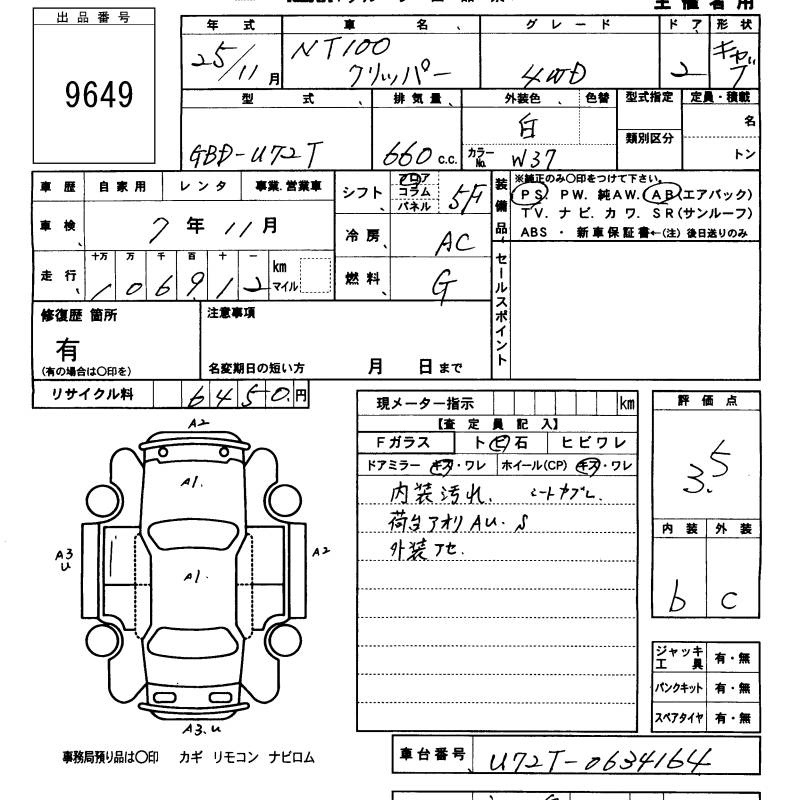 出品番号
9649
年式 車名 グレード ドア 形状
25/11月 NT100 クリッパー 4WD 2 キャブ
型式 排気量 外装色 色替 型式指定 定員・積載
GBD-U72T 660c.c. 白 カラーNo. W37 類別区分 名 トン
車歴 自家用 レンタ 事業.営業車
車検 7年11月
走行 十万 万 千 百 十 一
106912 km マイル
シフト フロア コラム パネル 5F
冷房 AC
燃料 G
装備品
※純正のみ〇印をつけて下さい。
PS. PW. 純AW. AB(エアバック)
TV. ナビ. カワ. SR(サンルーフ)
ABS ・ 新車保証書←(注) 後日送りのみ
セールスポイント
修復歴 箇所
有
(有の場合は〇印を)
注意事項
名変期日の短い方 月 日まで
リサイクル料 6450円
現メーター指示 km
【査定員記入】
Fガラス ト ビ 石 ヒビワレ
ドアミラー キズ・ワレ ホイール(CP) キズ・ワレ
内装汚れ. シートヤブレ.
荷台アオリ AU. S
外装アセ.
評価点
3.5
内装 外装
b c
ジャッキ工具 有・無
パンクキット 有・無
スペアタイヤ 有・無
A2
A1.
A3 U
A2
A1.
A3.U
事務局預り品は〇印 カギ リモコン ナビロム
車台番号 U72T-0634164